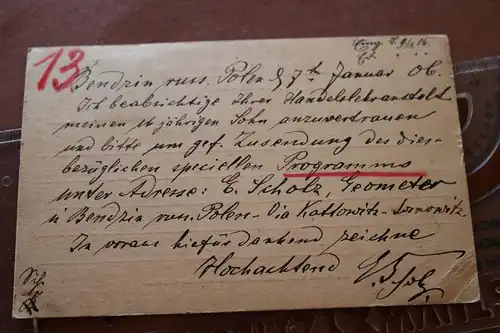 13
9/1 06
Bendzin russ. Polen d 7ten Januar 06.
Ich beabsichtige Ihrer Handelslehranstalt
meinen 16 jährigen Sohn anzuvertrauen
und bitte um gef. Zusendung des dies-
bezüglichen speciellen Programms
unter Adresse: E. Scholz, Geometer
in Bendzin russ. Polen - Via Kattowitz - Sosnowitz.
In voraus hiefür dankend zeichne
Hochachtend E. Scholz